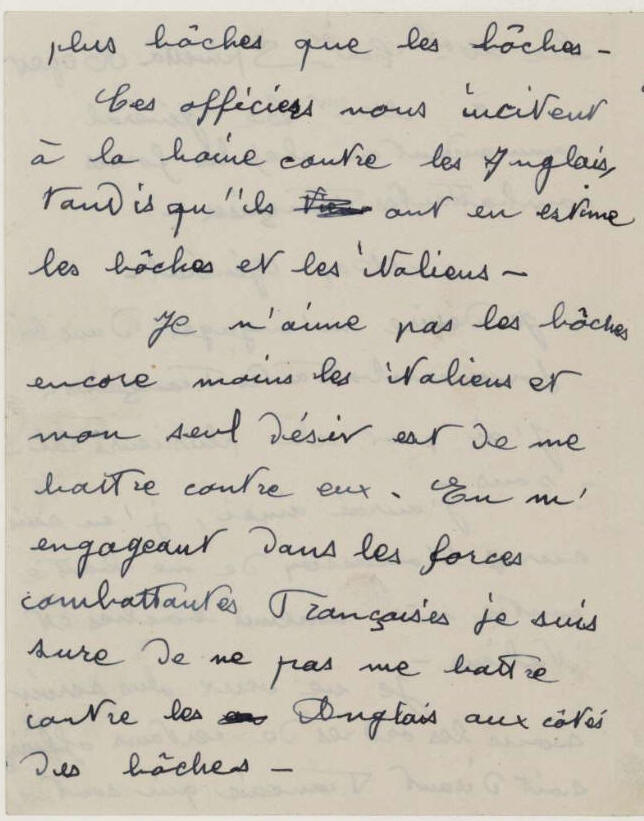 plus bôches que les bôches -
Ces officiers nous incitent
à la haine contre les Anglais,
tandis qu"ils ont en estime
les bôches et les italiens -
Je n'aime pas les bôches
encore moins les italiens et
mon seul désir est de me
battre contre eux. En m'
engageant dans les forces
combattantes Françaises je suis
sure de ne pas me battre
contre les Anglais aux côtés
des bôches -